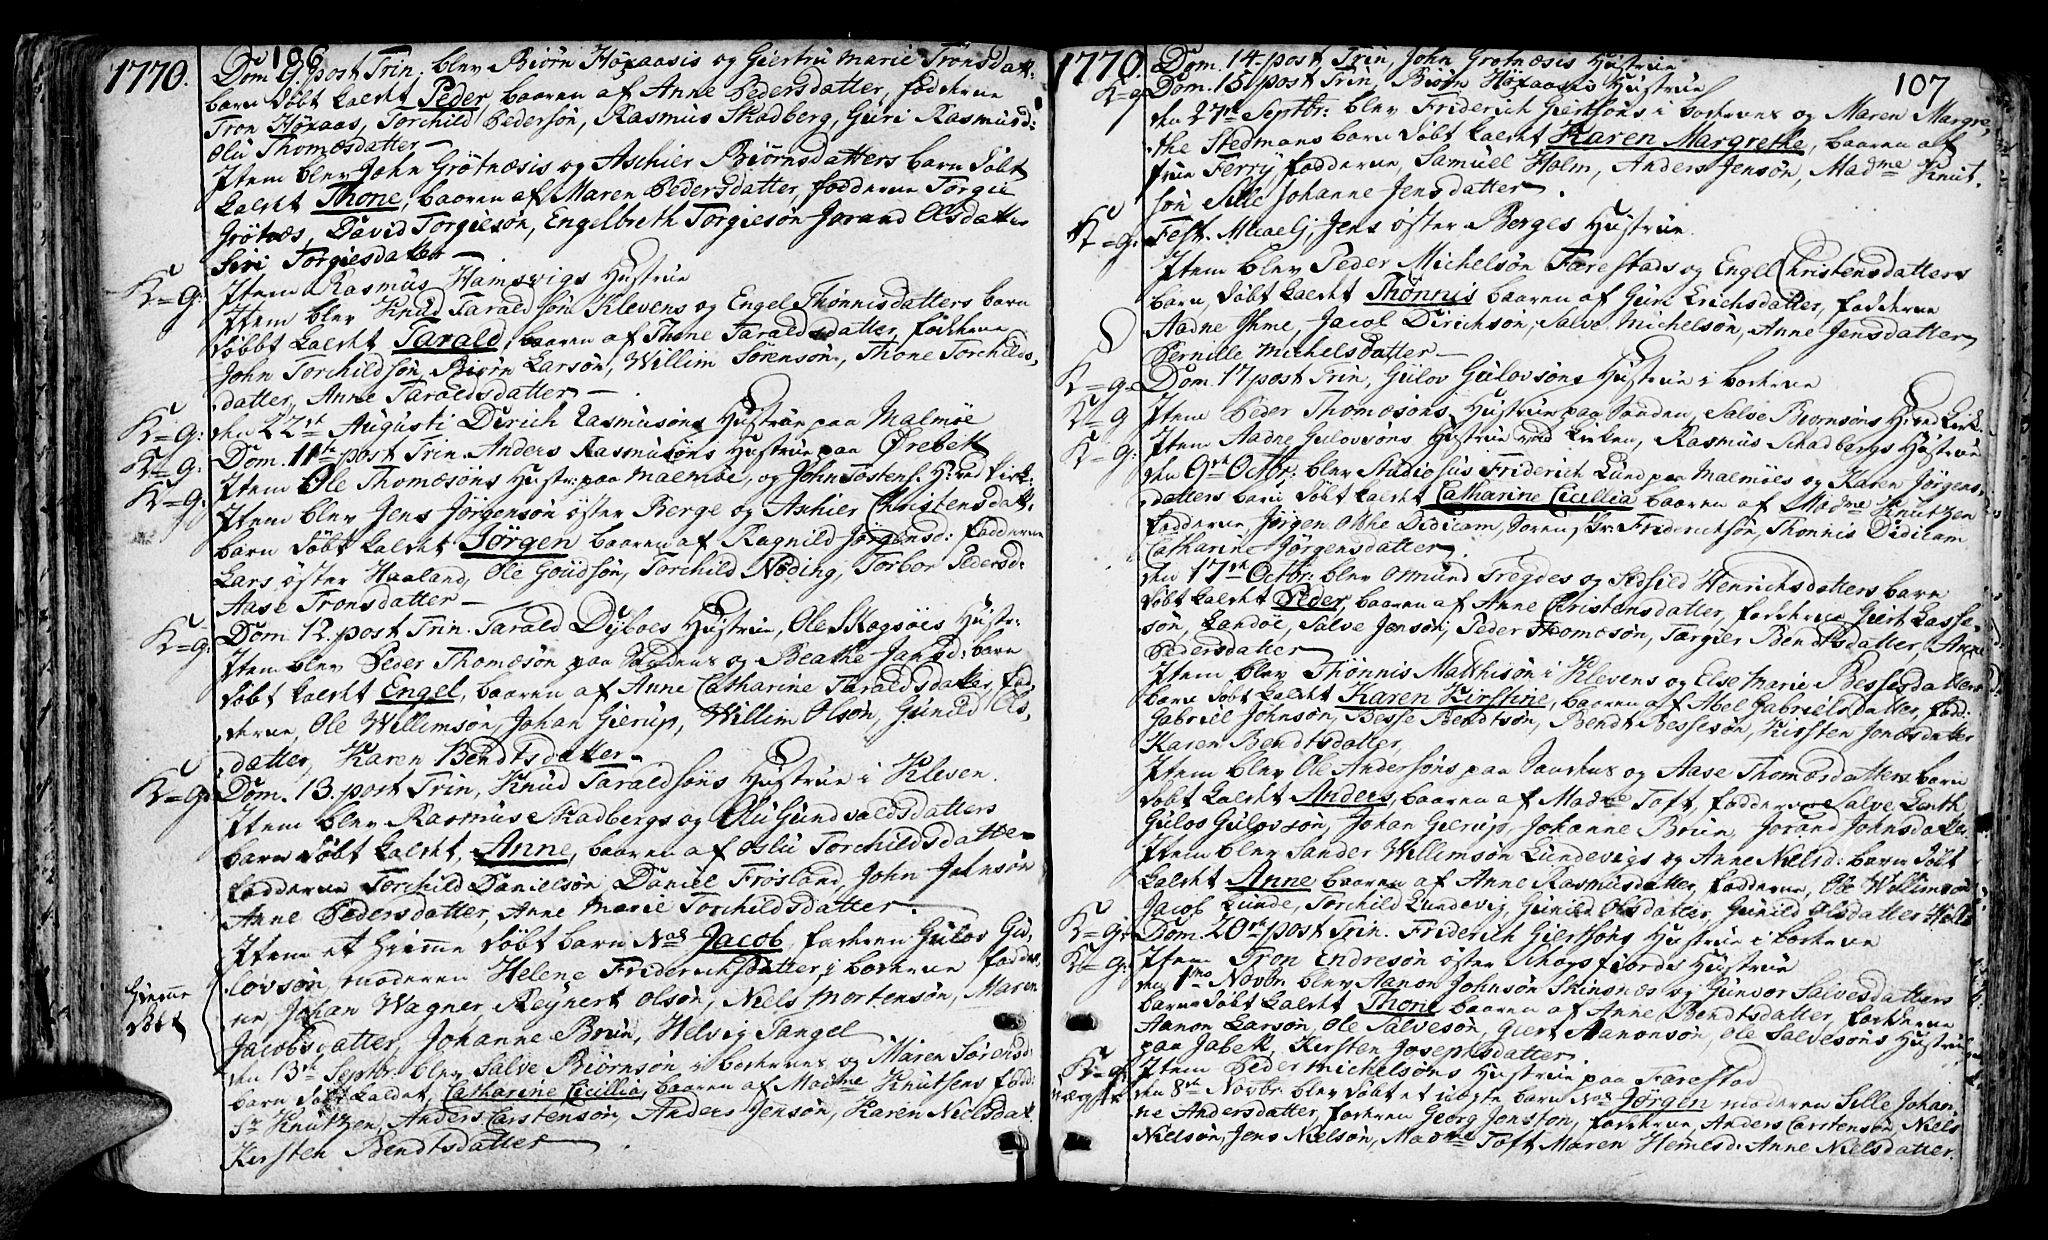 1770.
106
Dom 9. post Trin, blev Biørn Höxaasis og Giertru Marie Tronsdatt:
barn döbt kaldt Peder, baaren af Anne Pedersdatter, fadderne
Tron Höxaas, Torchild Pedersön, Rasmus Skadberg, Guri Rasmusd:
Oli Thomæsdatter
Item blev John Grötnæsis og Aschier Biörnsdatters barn döbt
kaldt Thone, baaren af Maren Pedersdatter, fadderne Torgie
Grötnæs, David Torgiesön, Engelbreth Torgiesön Jorand Olsdatter
Siri Torgiesdatter
K=g: Item Rasmus Hamsvigs Hustrue
Item blev Knud Taraldsöns Klevens og Engel Thönnisdatters barn
döbbt kaldt Tarald, baaren af Thone Taraldsdatter, fadderne
John Torchildsön, Biörn Larsön, Willim Sörensön, Thone Torchilds,
datter, Anne Taraldsdatter
K=g: den 22de Augusti Dirich Rasmusöns Hustrue paa Malmöe
K=g: Dom. 11te post Trin. Anders Rasmusöns Hustrue paa Ørebek
K=g: Item Ole Thomæsöns Hustr: paa Malmöe, og John Tostens. H: ved Kirk:
Item blev Jens Jörgensön öster Berge og Aschier Christensdatt,
barn döbt kaldt Jörgen baaren af Ragnild Jörgensd: fadderne
Lars öster Haaland, Ole Goudsön, Torchild Nöding, Torbor Pedersd:
Aase Tronsdatter
K=g: Dom. 12. post Trin. Tarald Dyboes Hustrue, Ole Skogsöes Hustr:
Item blev Peder Thomæsön paa Sandens og Beathe Jacobd: barn
döbt kaldt Engel, baaren af Anne Catharine Taraldsdatter, fad-
derne, Ole Willimsön, Johan Gierup, Willim Olsön, Gunild Ols,
datter, Karen Bendtsdatter
K=g: Dom. 13. post Trin, Knud Taraldsöns Hustrue i Kleven.
Item blev Rasmus Skadbergs og Oli Gundvaldsdatters
barn döbt kaldt, Anne, baaren af Oslu Torchildsdatter
fadderne Torchild Danielsön, Daniel Frösland, John Johnsön
Anne Pedersdatter, Anne Marie Torchildsdatter.
Hiemme
döbt
Item et hiemme döbt barn Nos Jacob, faderen Gulov Gu,
lovsön, moderen Helene Friderichsdatter, i borkene fadder,
ne, Johan Wagner, Reynert Olsön, Niels Mortensön, Maren
Jacobsdatter, Johanne Brun, Helvig Tangel
den 13de Septbr blev Salve Biörnsön i borkenes og Maren Sörensd:
barn döbt kaldet, Catharine Cicillia, baaren af Madme Knutsens fadd:
Sr Knutzen, Anders Carstensön, Anders Jensön, Karen Nielsdat
Kirsten Bendtsdatter
1770
107
Dom. 14. post Trin, John Grotnæsis Hustrue
K=g Dom. 15. post Trin, Biörn Höxaases Hustrue
den 27de Septbr: blev Friderich Giertsöns i borkenes og Maren Margre,
the Stedmans barn döbt kaldt Karen Margrethe, baaren af
frue Ferry fadderne, Samuel Holm, Anders Jensön, Madme Knut,
sön Sille Johanne Jensdatter.
K=g: Fest. Micaelj, Jens öster Berges Hustrue
Item blev Peder Michelsön Færestads og Engel Christensdatters
barn, döbt kaldt Thönnis baaren af Guri Erichsdatter, fadderne
Aadne Ihme, Jacob Dirichsön, Salve Michelsön, Anne Jensdatter
Pernille Michelsdatter
K=g: Dom. 17 post Trin, Gulov Gulovsöns Hustrue i borkene
K=g Item Peder Thomæsöns Hustrue paa Sanden, Salve Biornsöns H: ved Kirk:
K=g: Item Aadne Gulovsöns Hustrue ved Kirken, Rasmus Schadbergs Hustrue
den 9de Octbr: blev Studiosus Friderich Lund paa Malmöes og Karen Jörgens,
datters barn döbt kaldt Catharine Cicillia baaren af Madme Knutzen
fadderne, Jörgen Didicam, Soren, Friderichsön, Thonnis Didicam
Catharine Jörgensdatter.
den 17de Octbr: blev Omund Tregdes og Sidsild Henrichsdatters barn
döbt kaldt Peder, baaren af Anne Christensdatter, fadderne Giert Lasse,
sön, Landöe, Salve Jensön, Peder Thomæsön, Targier Bendtsdatter, Anne
Pedersdatter
Item blev Thönnis Matthisön i Klevens og Else Marie Bessesdatters
barn döbt kaldt Karen Kirstine, baaren af Abel Gabrielsdatter, fadd:
Gabriel Johnsön, Besse Bendtsön, Bendt Bessesön, Kirsten Jonæsdatter
Karen Bendtsdatter,
Item blev Ole Andersöns paa og Aase Thomæsdatters barn
döbt kaldt Anders, baaren af Madme Toft, fadderne Salve
Gulos Gulovsön, Johan Gierup, Johanne Brun, Jorand Johnsdatter,
Item blev Sander Willimsön Lundevigs og Anne Nielsd: barn döbt
kaldt Anne baaren af Anne Rasmusdatter, fadderne, Ole Willimsön
Jacob Lunde, Torchild Lundevig, Gunild Olsdatter, Gunild Olsdatter
K=g: Dom. 20de post Trin. Friderich Giertsöns Hustrue i borkene
K=g. Item Tron Endresön öster Schogsfiords Hustrue
den 1mo Novbr blev Aanon Johnsön Skinsnæs og Gunvor Salvesdatters
barn döbt kaldt Thone baaren af Anne Bendtsdatter, fadderne
Aanon Larsön, Ole Salvesön, Giert Aanonsön, Ole Salvesöns Hustrue
paa Jabek, Kirsten Josephsdatter.
K=g: Item Peder Michelsöns Hustrue paa Farestad
Uægte den 8de Novbr blev döbt et uægte barn Nos Jörgen moderen Sille Johan,
ne Andersdatter, faderen Georg Jonston, fadderne, Anders Carstensön, Niels
Nielsön, Jens Nielsön, Madme Toft Maren Hemesd: Anne Nielsdatter.